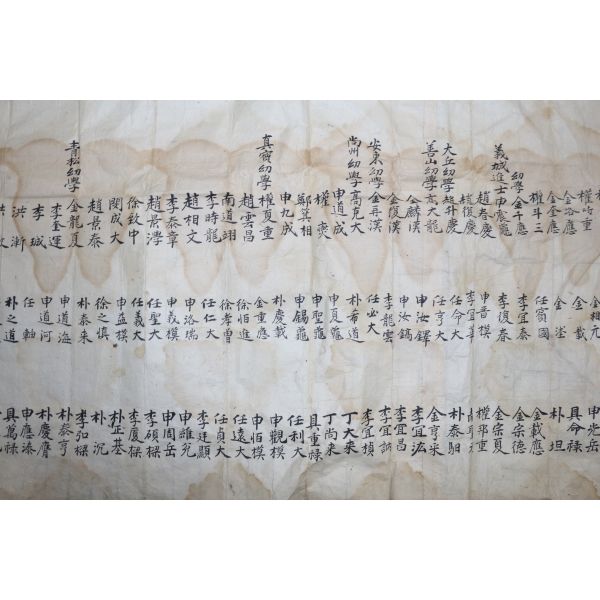 權時重
金洛應
金金應
權斗三
幼學金千應
義城進士申
趙春慶
趙復慶
大丘幼學趙升慶
善山幼學高大龍
金麟漢
金復漢
安東幼學金再漢
尙州幼學高克大
申道成
權
鄭箕相
申九成
真寶幼學權夏重
趙雲昌
南道翊
李時龍
趙相文
李泰章
趙景
徐致中
閔成大
趙景泰
青松幼學金龍夏
李奎運
李珹
洪漸
金相元
金載
金崟
任賓國
李宜泰
李復春
申晋模
李宜華
任命大
任亨大
申汝鐸
申汝鎬
李龍雲
任必大
朴希道
申夏龜
申聖龜
申錫龜
朴慶載
金重應
徐恒進
徐孝曾
任仁大
申洛瑞
申羲模
任聖大
任義大
申益模
徐之愼
朴泰來
申道海
申道河
任軸
朴之道
申光岳
具命祿
朴坦
金載應
金宗德
金宗夏
權邦重
朴泰
金亨
李宜泓
李宜昌
李宜
李宜楨
丁大采
丁尚來
具重祿
任利大
申觀模
申恒模
任遠大
任貞大
李廷顯
申維允
申周岳
李碩樑
李廈樑
朴正基
朴沉
李弘樑
朴泰亨
朴慶膺
申應添
具萬祿